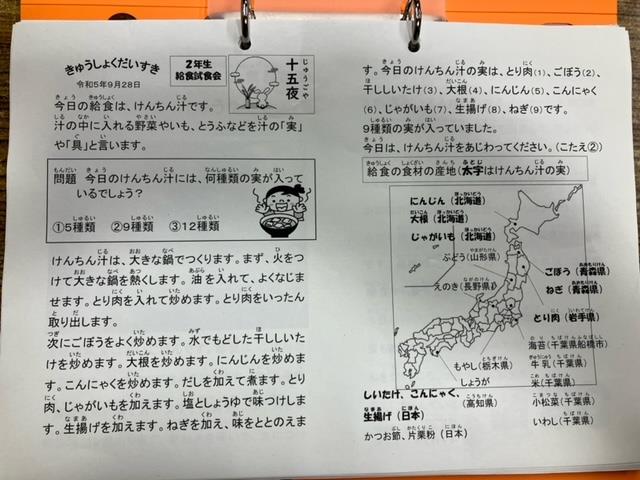 きゅうしょくだいすき
令和5年9月28日
2年生
給食試食会
十五夜
じゅうごや
今日の給食は、けんちん汁です。
汁の中に入れる野菜やいも、とうふなどを汁の「実」
や「具」と言います。
問題 今日のけんちん汁には、何種類の実が入って
いるでしょう?
①5種類 ②9種類 ③12種類
けんちん汁は、大きな鍋でつくります。まず、火をつ
けて大きな鍋を熱くします。油を入れて、よくなじま
せます。とり肉を入れて炒めます。とり肉をいったん
取り出します。
次にごぼうをよく炒めます。水でもどした干ししいた
けを炒めます。大根を炒めます。にんじんを炒めま
す。こんにゃくを炒めます。だしを加えて煮ます。とり
肉、じゃがいもを加えます。塩としょうゆで味つけしま
す。生揚げを加えます。ねぎを加え、味をととのえま
す。今日のけんちん汁の実は、とり肉(1)、ごぼう(2)、
干ししいたけ(3)、大根(4)、にんじん(5)、こんにゃく
(6)、じゃがいも(7)、生揚げ(8)、ねぎ(9)です。
9種類の実が入っていました。
今日は、けんちん汁をあじわってください。(こたえ②)
給食の食材の産地(太字はけんちん汁の実)
にんじん(北海道)
大根(北海道)
じゃがいも(北海道)
ぶどう(山形県)
えのき(長野県)
ごぼう(青森県)
ねぎ(青森県)
とり肉(岩手県)
海苔(千葉県船橋市)
もやし(栃木県)
牛乳(千葉県)
しょうが
(高知県)
米(千葉県)
しいたけ、こんにゃく、
生揚げ(日本)
小松菜(千葉県)
かつお節、片栗粉(日本)
いわし(千葉県)